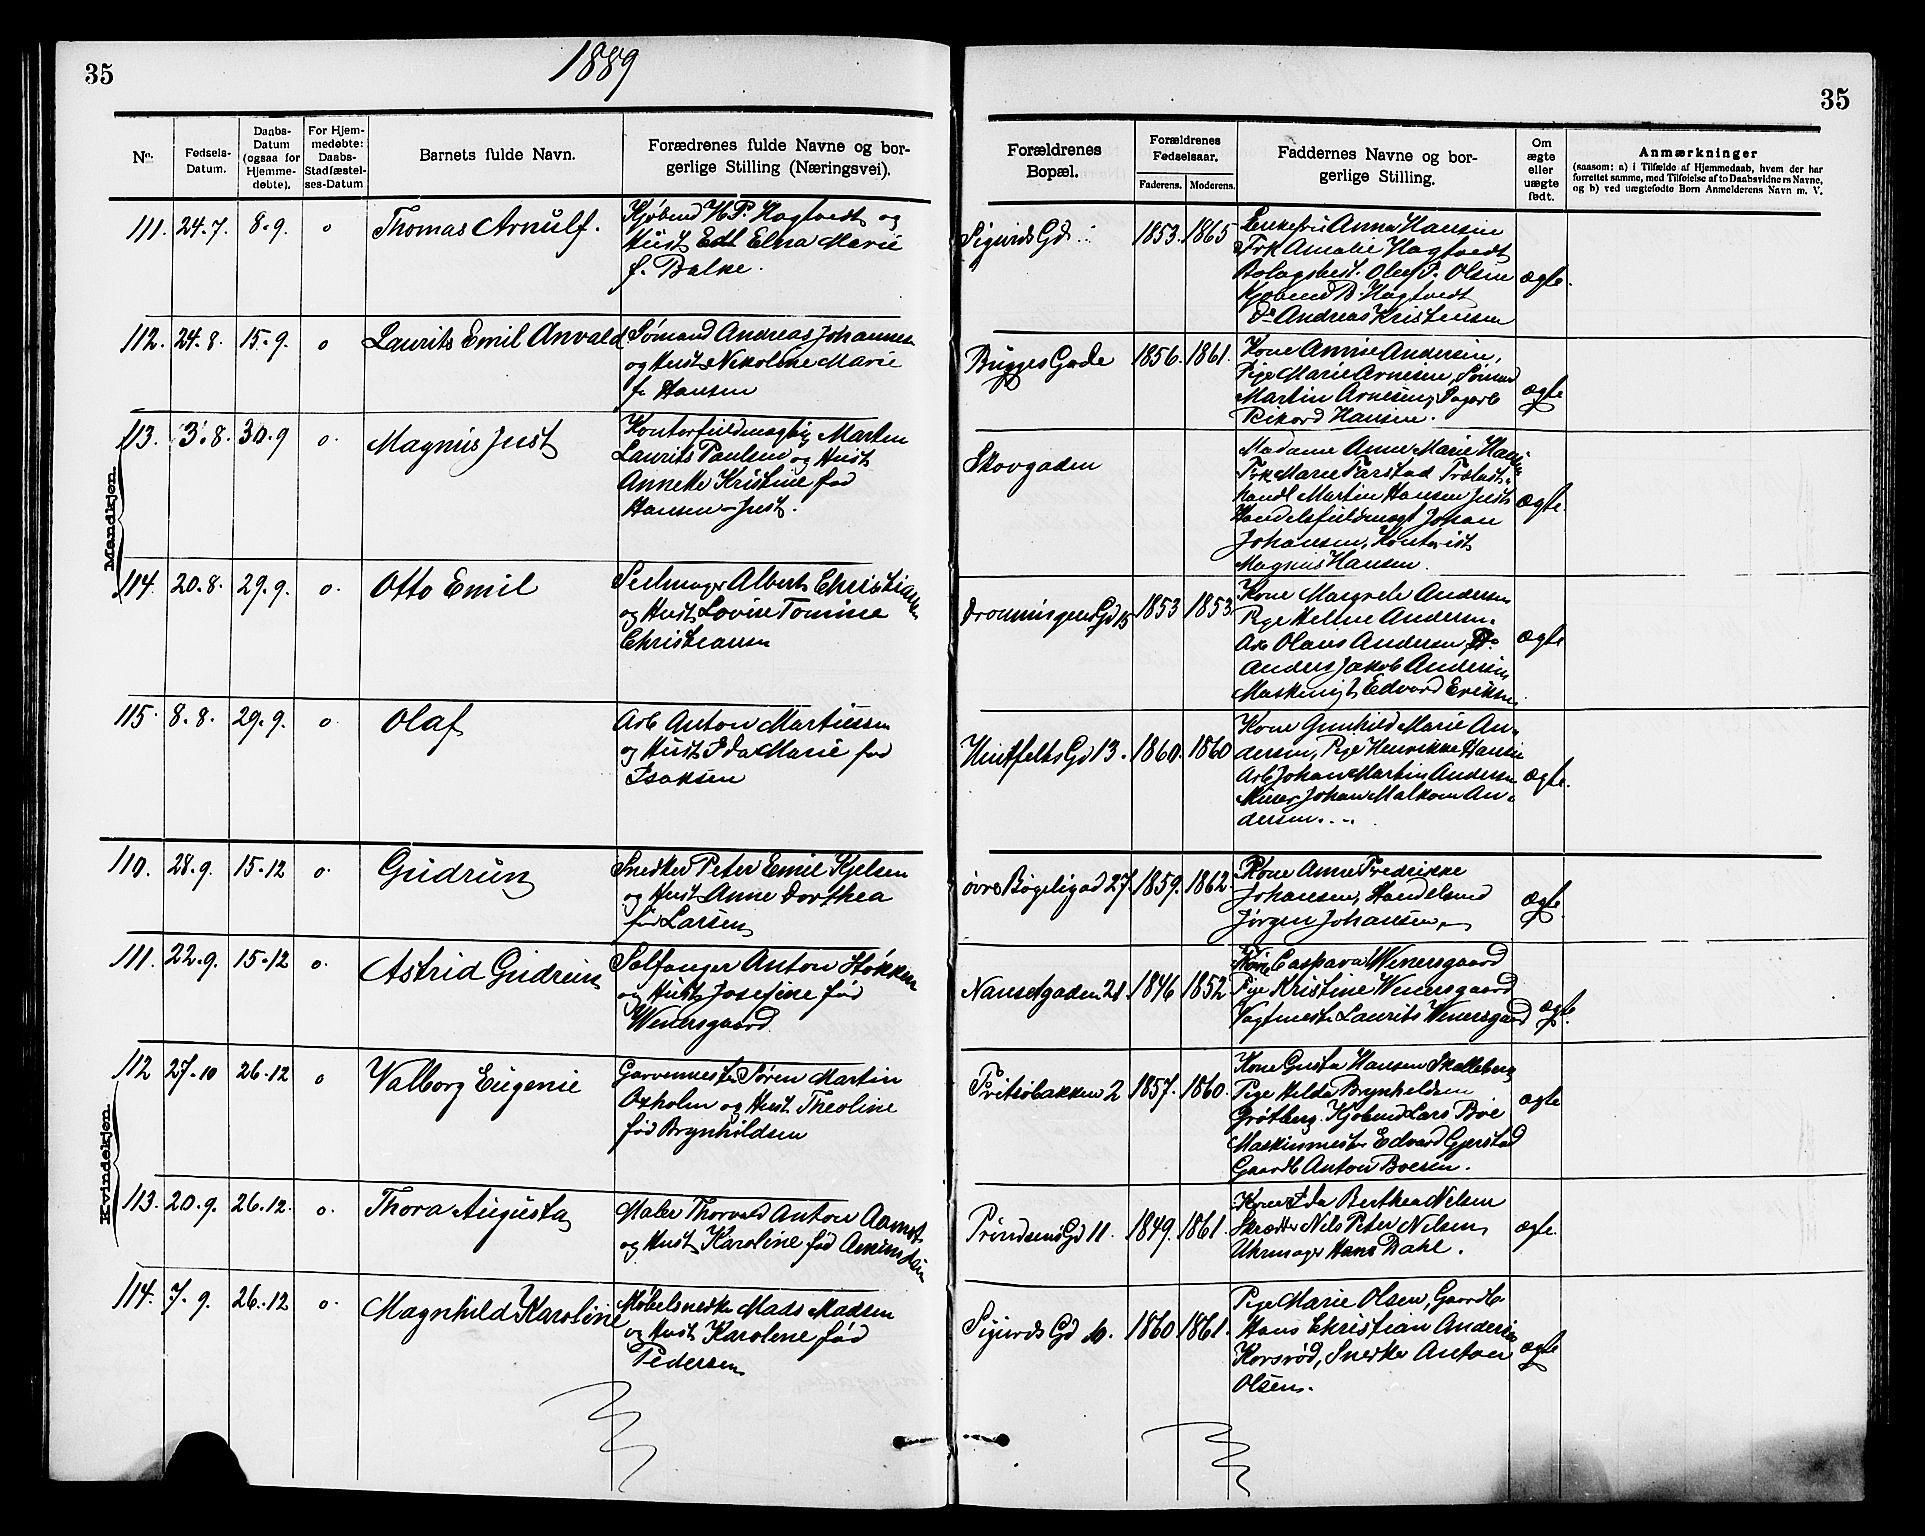 35
1889
35
No.
Fødsels-
Datum.
Daabs-
Datum
(ogsaa for
Hjemme-
døbte).
For Hjem-
medøbte:
Daabs-
Stadfæstel-
ses-Datum
Barnets fulde Navn.
Forædrenes fulde Navne og bor-
gerlige Stilling (Næringsvei).
Forældrenes
Bopæl.
Forældrenes
Fødselsaar.
Faderens. Moderens.
Faddernes Navne og bor-
gerlige Stilling.
Om
ægte
eller
uægte
født.
Anmærkninger
(saasom: a) i Tilfælde af Hjemmedaab, hvem der har
forrettet samme, med Tilføielse af to Daabsvidners Navne,
og b) ved uægtefødte Børn Anmelderens Navn m. V.
Mandkjøn
111. 24.7. 8.9. o Thomas Arnulf.
Kjøbmd H.P. Hagtvedt og
Hust Edl Elna Marie
f. Balke.
Sigurds Gd. 1853. 1865
Enkefru Anna Hansen
Frk Amalie Hagtvedt
Bolagsbest. Oluf P. Olsen
Kjøbmd B. Hagtvedt
Do Andreas Kristensen
ægte.
112. 24.8. 15.9. o Laurits Emil Anvald
Sømand Andreas Johannes
og Hust Nikoline Marie
f. Hansen
Brygges Gade 1856. 1861.
Kone Annine Andersen,
Pige Marie Arnesen, Sømand
Martin Arnesen, Sagarb
Rikard Hansen.
ægte
113. 3.8. 30.9 o. Magnus Just
Kontorfuldmægtig Marten
Laurits Paulsen og Hust
Annette Kristine fød
Hansen-Just.
Skovgaden
Madame Anne Marie Hansen
Frk Marie Farstad Trælast-
handl Martin Hansen Just
Handelsfuldmægt Johan
Johansen, Kontorist
Magnus Hansen.
ægte.
114. 20.8. 29.9. o. Otto Emil
Seilmager Albert Christiansen
og Hust Lovise Tomine
Christiansen
Dronningens Gd 15 1853 1853
Kone Margrete Andersen
Pige Helene Andersen.
Arb Olaus Andersen Do
Anders Jakob Andersen
Maskinist Edvard Eriksen.
ægte
115. 8.8. 29.9. o Olaf
Arb Anton Martinssen
og Hust Ida Marie fød
Isaksen
Huitfelts Gd 13. 1860. 1860
Kone Gunhild Marie An-
dersen, Pige Henrikke Hansen
Arb Johan Martin Andersen
Murer Johan Malkom An-
dersen.
ægte.
Kvindekjøn
110. 28.9. 15.12 o. Gudrun
Snedker Peter Emil Kjelsen
og Hust Anne Dorthea
fød Larsen
øvre Bøgeligad 27. 1859. 1862.
Kone Anne Fredrikke
Johansen, Handelsmd
Jørgen Johansen,
ægte.
111. 22.9. 15.12 o. Astrid Gudrun
Sælfanger Anton Støkken
og Hust Josefine fød
Wenersgaard.
Nansetgaden 21. 1846 1852
Kone Caspara Wenersgaard
Pige Kristine Wenersgaard
Vagtmester Laurits Wenersgaard
ægte.
112 27.10 26.12 o Valborg Eugenie
Garvermester Søren Martin
Oxholm og Hust. Theoline
fød Brynhildsen
Fritsøbakken 2 1857. 1860.
Kone Gusta Hansen Skalleberg
Pige Hilda Brynhildsen
Grøtberg. Kjøbmd Lars Bøe
Maskinmester Edvard Gjerstad
Gaardb Anton Boesen.
ægte
113. 20.9. 26.12. o. Thora Augusta
Maler Thorvald Anton Aamot
og Hust Karoline fød Amundsen
Prindsens Gd 11. 1849. 1861.
Kone Ida Berthea Nelsen
Skrædder Nils Peter Nelsen,
Uhrmager Hans Dahl.
ægte.
114. 7.9. 26.12 o. Magnhild Karoline
Møbelsnedker Mads Madsen
og Hust Karolene fød
Pedersen
Sigurds Gd 10. 1860 1861.
Pige Marie Olsen, Gaardb
Hans Christian Andersen
Korsrød, Snedker Anton
Olsen.
ægte